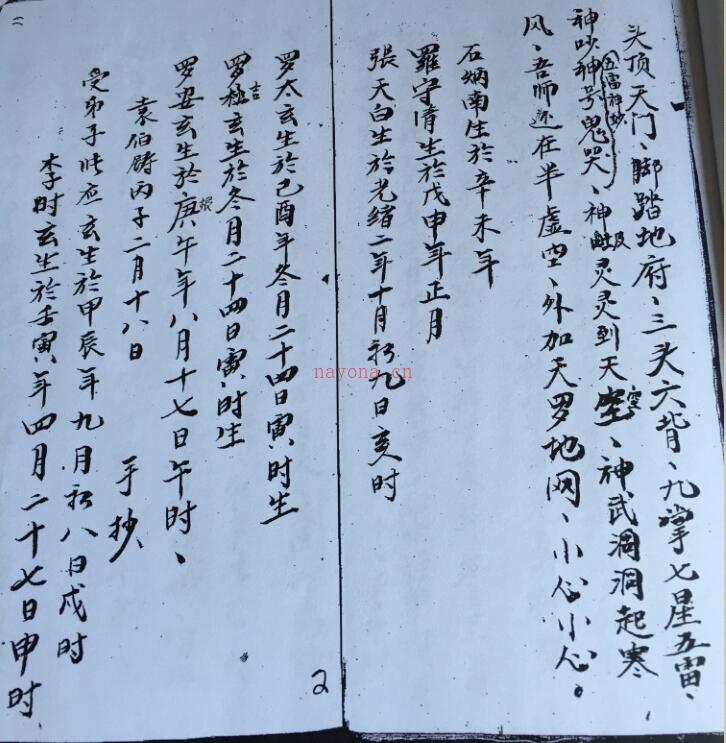 头顶天门、脚踏地府、三头六背、九掌七星五雷、
五雷神吵
神吵神号鬼哭、神鬼灵灵到天空、神武洞洞起寒
风、吾师还在半虚空、外加天罗地网、小心小心。
石炳南生於辛未年
羅守清生於戊申年正月
張天白生於光绪二年十月初九日亥时
罗太玄生於己酉年冬月二十四日寅时生
罗極玄生於冬月二十四日寅时生
罗安玄生於庚午年八月十七日午时、
袁伯鑄丙子二月十八日 手抄
受弟子 应玄生於甲辰年九月初八日戍时
李时玄生於壬寅年四月二十七日申时
2
nayona.cn